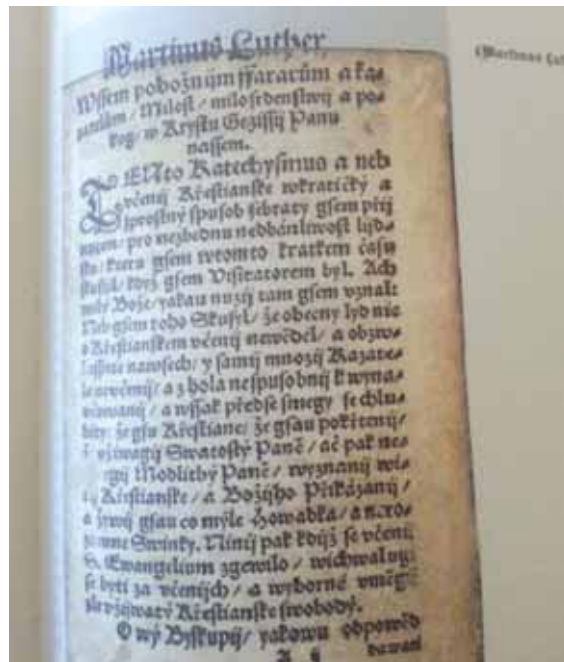 Martinus Luther,
Wssem pobožným ffarařům a ka-
zatelům / Milost / milosrdenstwij a po-
kog / w Krystu Gežissij Panu
nassem.
TENto Katechysmus a neb
včenij Křestianske wkratičký a
sprostný spusob sebraty gsem přij
pro nezbednu nedbánliwost lijd-
sku / kteru gsem wtomto kratkem času
skusyl / když gsem Visitatorem byl. Ach
mily Bože / yakau nuzij tam gsem vznal:
Neb gsem toho Skusyl / že obecny lyd nic
o Křestianskem včenij newěděl / a obzw-
lasstne nawsech / y samij mnozij Kazate-
le nevěmij / a zhola nespusobnij k wyna-
včowanij / a wssak předse smegy se chlu-
biti, že gsu Křestiane; že gsau pokřtenij /
ž vžiwagij Swatosty Paně / ač pak ne-
Modlitby Paně / wyznanij wi-
ry Křestianske / a Božijho Přikázanij /
a žiwij gsau co myle Howabka / a nero-
zumne Swinky. Ninij pak když se včeni
S. Ewangelium zgewilo / wichwalugi
se byti za včenijch / a wyborně vměgij
zle vžijwaty Křestianske swobody.
O wy Byskupij / yakowu odpowěd
A
dawati
(Martinus